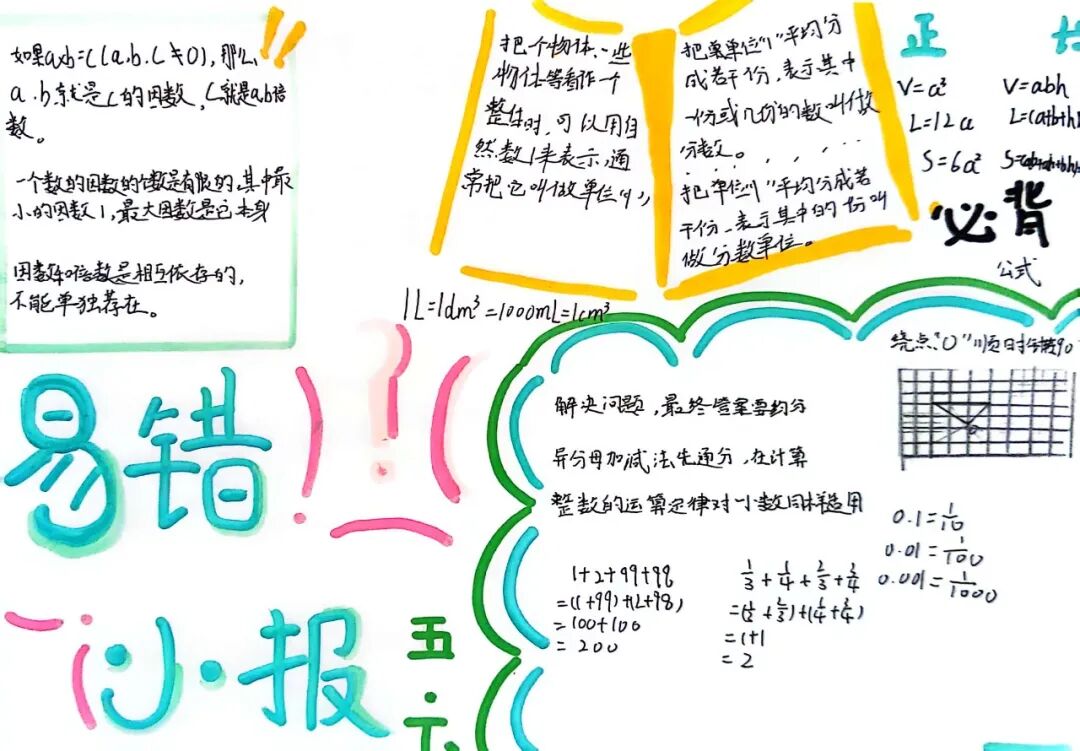 如果axb=c(a.b.c≠0),那么
a.b就是c的因数,c就是a,b倍
数。
一个数的因数的个数是有限的,其中最
小的因数1,最大因数是它本身
因数和倍数是相互依存的,
不能单独存在。
把一个物体、一些
物体等看作一个
整体时,可以用自
然数1来表示,通
常把它叫做单位"1",
把单位"1"平均分
成若干份,表示其中
一份或几份的数叫做
分数。
把单位"1"平均分成若
干份、表示其中的一份叫
做分数单位。
正
V=a³
L=12a
S=6a²
长
V=abh
L=(a+b+h)
必背
公式
1L=1dm³=1000mL=1cm³
易错
小报
五.六
绕点"O"顺时针转90°
解决问题,最终答案要约分
异分母加减法先通分,在计算
整数的运算定律对小数同样适用
0.1=1/10
0.01=1/100
0.001=1/1000
1+2+99+98
=(1+99)+(2+98)
=100+100
=200
1/3+1/4+2/3+3/4
=(1/3+2/3)+(1/4+3/4)
=1+1
=2